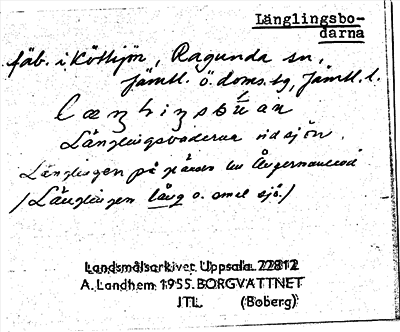 Länglingsbo-
darna
fäb. i Köttsjön, Ragunda sn,
Jämtl. ö. doms.sg, Jämtl. l.
Länglingsbodarna vid sjön
Länglingen på gränsen till Ångermanland
(Länglingen lång o. smal sjö.)
Landsmålsarkivet Uppsala 22812
A. Landhem 1955. BORGVATTNET
JTL. (Boberg)